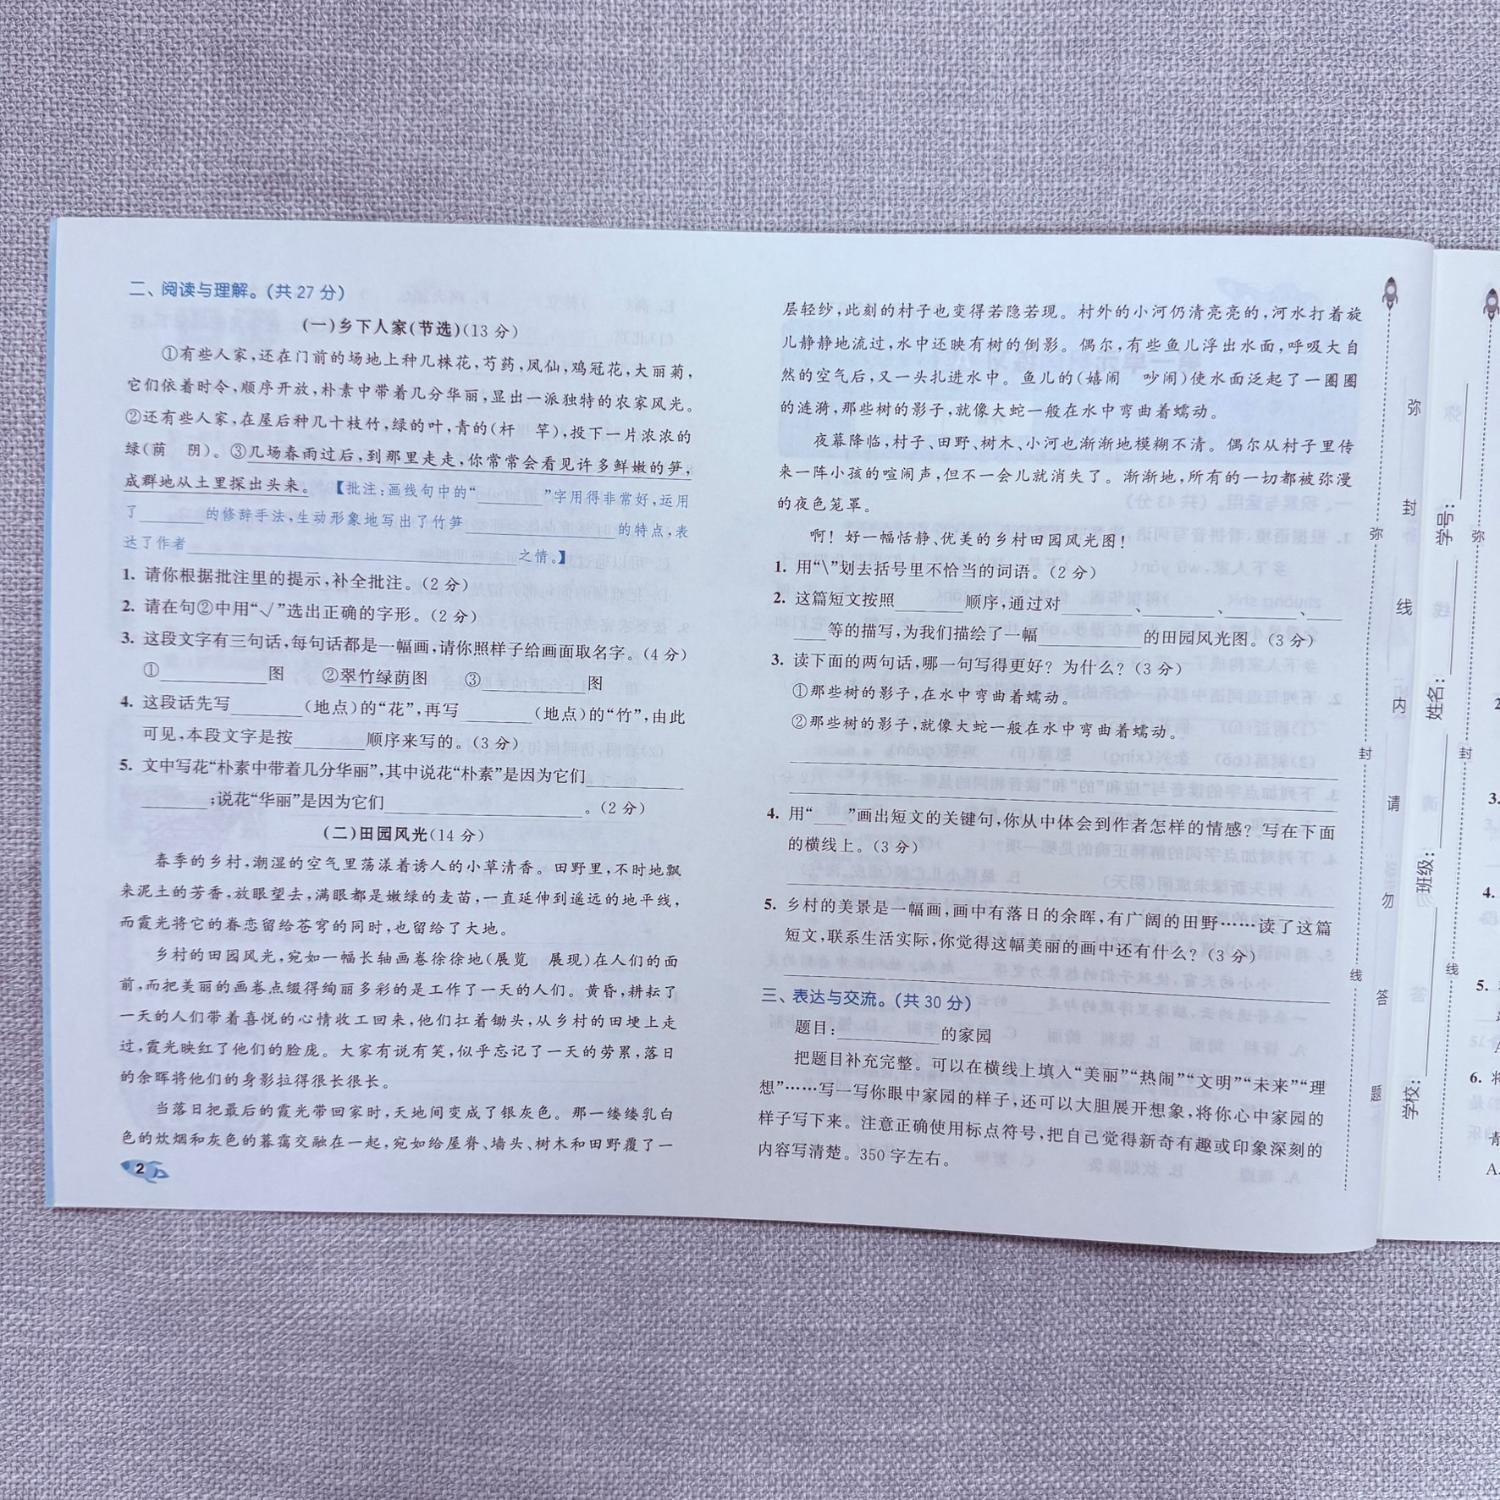 二、阅读与理解。(共27分)
(一)乡下人家(节选)(13分)
①有些人家,还在门前的场地上种几株花,芍药,凤仙,鸡冠花,大丽菊,
它们依着时令,顺序开放,朴素中带着几分华丽,显出一派独特的农家风光。
②还有些人家,在屋后种几十枝竹,绿的叶,青的(杆 竿),投下一片浓浓的
绿(荫 阴)。③几场春雨过后,到那里走走,你常常会看见许多鲜嫩的笋,
成群地从土里探出头来。【批注:画线句中的“______”字用得非常好,运用
了______的修辞手法,生动形象地写出了竹笋______的特点,表
达了作者______之情。】
1. 请你根据批注里的提示,补全批注。(2分)
2. 请在句②中用“√”选出正确的字形。(2分)
3. 这段文字有三句话,每句话都是一幅画,请你照样子给画面取名字。(4分)
①______图 ②翠竹绿荫图 ③______图
4. 这段话先写______(地点)的“花”,再写______(地点)的“竹”,由此
可见,本段文字是按______顺序来写的。(3分)
5. 文中写花“朴素中带着几分华丽”,其中说花“朴素”是因为它们______
______;说花“华丽”是因为它们______。(2分)
(二)田园风光(14分)
春季的乡村,潮湿的空气里荡漾着诱人的小草清香。田野里,不时地飘
来泥土的芳香,放眼望去,满眼都是嫩绿的麦苗,一直延伸到遥远的地平线,
而霞光将它的眷恋留给苍穹的同时,也留给了大地。
乡村的田园风光,宛如一幅长轴画卷徐徐地(展览 展现)在人们的面
前,而把美丽的画卷点缀得绚丽多彩的是工作了一天的人们。黄昏,耕耘了
一天的人们带着喜悦的心情收工回来,他们扛着锄头,从乡村的田埂上走
过,霞光映红了他们的脸庞。大家有说有笑,似乎忘记了一天的劳累,落日
的余晖将他们的身影拉得很长很长。
当落日把最后的霞光带回家时,天地间变成了银灰色。那一缕缕乳白
色的炊烟和灰色的暮霭交融在一起,宛如给屋脊、墙头、树木和田野覆了一
2
层轻纱,此刻的村子也变得若隐若现。村外的小河仍清亮亮的,河水打着旋
儿静静地流过,水中还映有树的倒影。偶尔,有些鱼儿浮出水面,呼吸大自
然的空气后,又一头扎进水中。鱼儿的(嬉闹 吵闹)使水面泛起了一圈圈
的涟漪,那些树的影子,就像大蛇一般在水中弯曲着蠕动。
夜幕降临,村子、田野、树木、小河也渐渐地模糊不清。偶尔从村子里传
来一阵小孩的喧闹声,但不一会儿就消失了。渐渐地,所有的一切都被弥漫
的夜色笼罩。
啊!好一幅恬静、优美的乡村田园风光图!
1. 用“\”划去括号里不恰当的词语。(2分)
2. 这篇短文按照______顺序,通过对______、______、
______等的描写,为我们描绘了一幅______的田园风光图。(3分)
3. 读下面的两句话,哪一句写得更好?为什么?(3分)
①那些树的影子,在水中弯曲着蠕动。
②那些树的影子,就像大蛇一般在水中弯曲着蠕动。
4. 用“___”画出短文的关键句,你从中体会到作者怎样的情感?写在下面
的横线上。(3分)
5. 乡村的美景是一幅画,画中有落日的余晖,有广阔的田野……读了这篇
短文,联系生活实际,你觉得这幅美丽的画中还有什么?(3分)
三、表达与交流。(共30分)
题目:______的家园
把题目补充完整。可以在横线上填入“美丽”“热闹”“文明”“未来”“理
想”……写一写你眼中家园的样子,还可以大胆展开想象,将你心中家园的
样子写下来。注意正确使用标点符号,把自己觉得新奇有趣或印象深刻的
内容写清楚。350字左右。
弥 封 线 内 请 勿 答 题
弥 封 线
学号:
姓名:
班级:
学校:
弥 封 线
3.
4.
5.
6.
A.